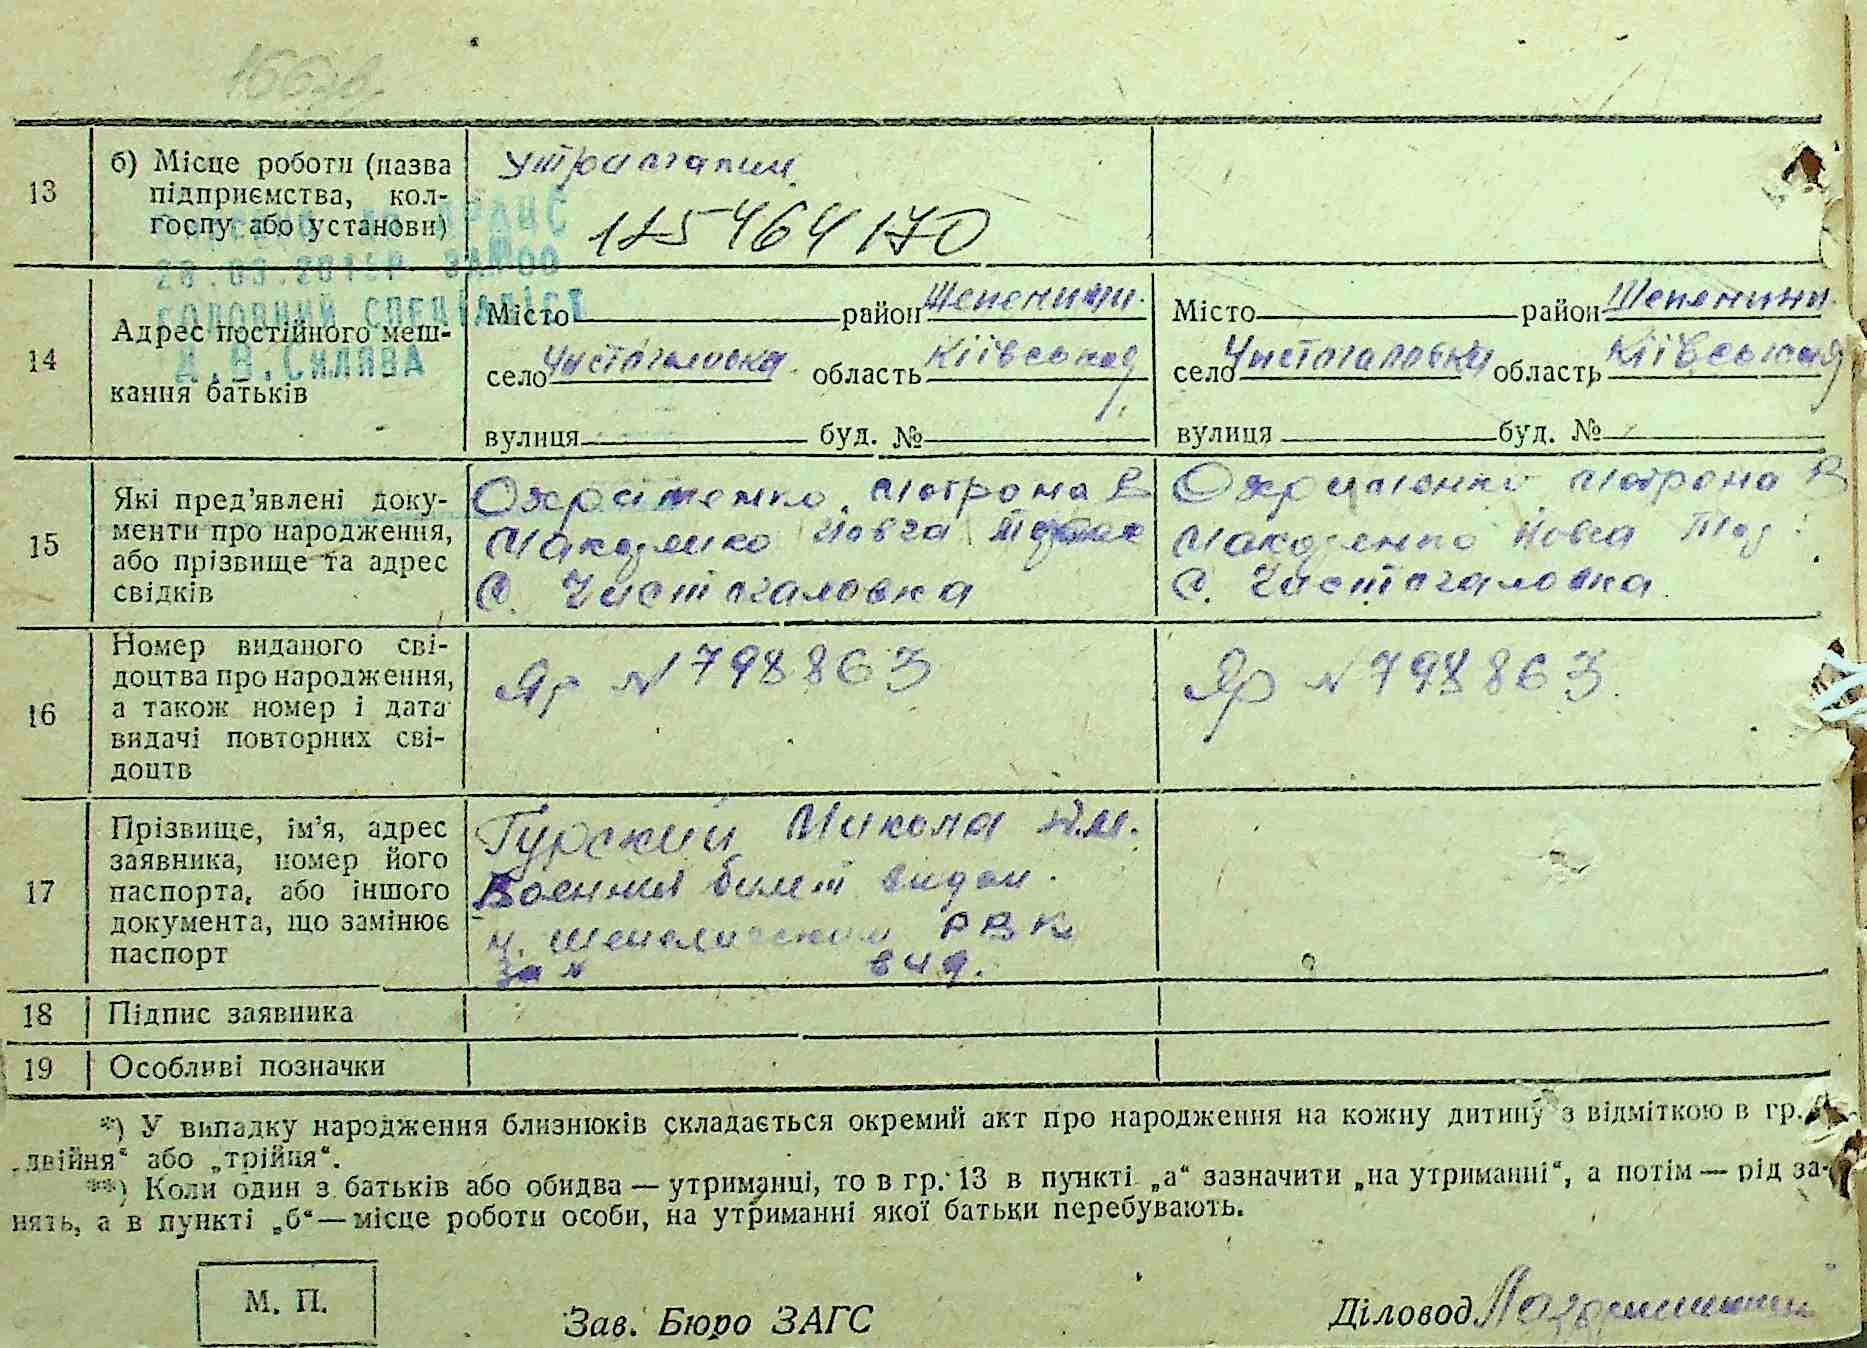 13
б) Місце роботи (назва
підприємства, кол-
госпу або установи)
175464170
28.03.201
ГОЛОВНИЙ СПЕЦІАЛІСТ
А.В.Силява
14
Адрес постійного меш-
кання батьків
Місто район Шепеличи.
село Чистогаловка область Київською
вулиця буд. №
Місто район Шепеличи.
село Чистогаловка область Київською
вулиця буд. №
15
Які пред'явлені доку-
менти про народження,
або прізвище та адрес
свідків
Охріменко Мотрона В
Макаренко Йовга
с. Чистогаловка
Охріменко Мотрона В
Макаренко Йовга
с. Чистогаловка
16
Номер виданого сві-
доцтва про народження,
а також номер і дата
видачі повторних сві-
доцтв
Яр № 798863
Яр № 798863
17
Прізвище, ім'я, адрес
заявника, номер його
паспорта, або іншого
документа, що замінює
паспорт
Гурский Микола
Военний билет видан.
Шепелическим РВК
за №
18
Підпис заявника
19
Особливі позначки
*) У випадку народження близнюків складається окремий акт про народження на кожну дитину з відміткою в гр.
„двійня“ або „трійця“.
**) Коли один з батьків або обидва — утриманці, то в гр. 13 в пункті „а“ зазначити „на утриманні“, а потім — рід за-
нять, а в пункті „б“ — місце роботи особи, на утриманні якої батьки перебувають.
М. П.
Зав. Бюро ЗАГС
Діловод